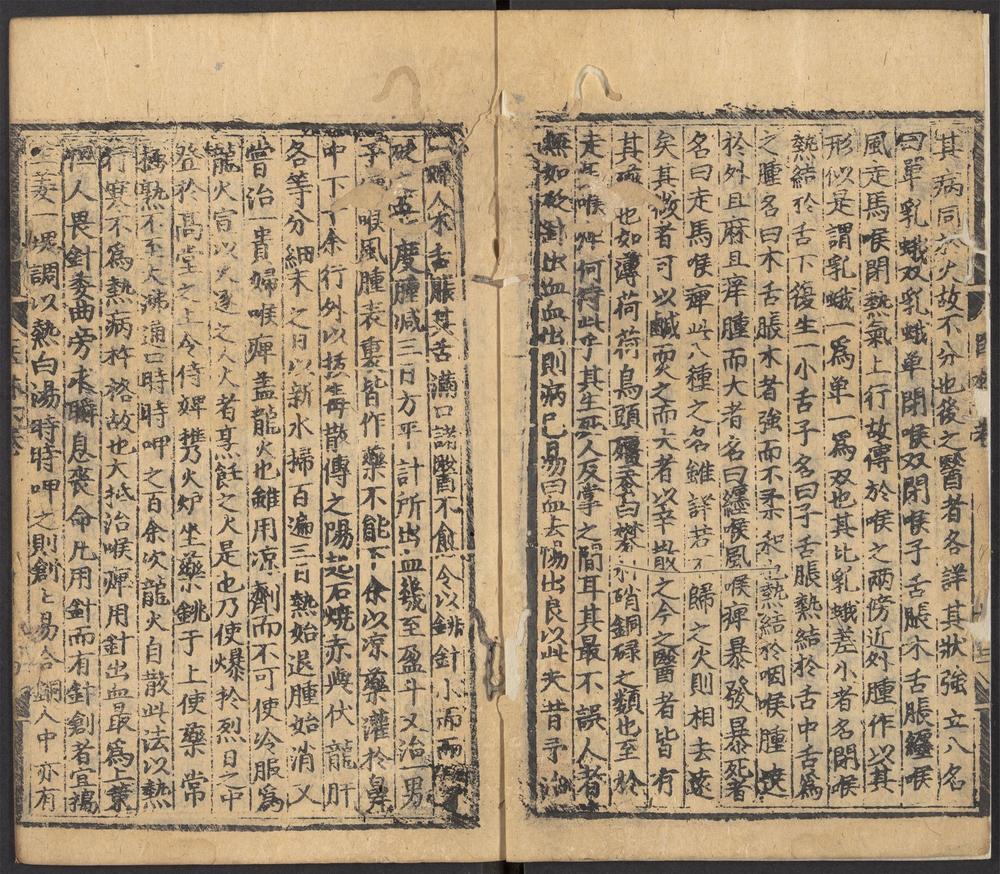 其病同是火故不分也後之醫者各詳其狀強立八名
曰單乳蛾双乳蛾单閉喉双閉喉子舌脹木舌脹纏喉
風走馬喉閉熱氣上行故傳於喉之兩傍近外腫作以其
形似是謂乳蛾一為单一為双也其比乳蛾差小者名閉喉
熱結於舌下復生一小舌子名曰子舌脹熱結於舌中舌為
之腫名曰木舌脹木者強而不柔和也熱結於咽喉腫遶
於外且麻且痒腫而大者名曰纏喉風喉痺暴發暴死者
名曰走馬喉痺此八種之名雖詳若不歸之火則相去遠
矣其微者可以鹹耎之而大者以辛散之今之醫者皆有
其 也如薄荷荷烏頭殭蚕白礬 硝銅碌之類也至於
走馬喉痺何待此乎其生死人反掌之間耳其最不誤人者
無如砭針出血血出則病已易曰血去惕出良以此夫昔予治
一婦人木舌脹其舌滿口諸醫不愈 令以銚針小而兩
破 五 度腫減三日方平計所出血幾至盈斗又治一男
子 喉風腫表裏皆作藥不能下余以凉藥灌於鼻
中下 余行外以拔毒散傅之陽起石燒赤與伏龍肝
各等分細末之日以新水掃百遍三日熱始退腫始消又
嘗治一貴婦喉痺盖龍火也雖用凉劑而不可使冷服為
龍火宜以火逐之人火者烹飪之火是也乃使爆於烈日之中
登於高堂之上令侍婢携火炉坐藥銚于上使藥常
極熱不至大沸滿口時時呷之百余次龍火自散此法以熱
行寒不為熱病杵格故也大抵治喉痺用針出血最為上策
但人畏針委曲旁求瞬息喪命凡用針而有針創者宜擣
生姜一塊調以熱白湯時時呷之則創口易合銅人中亦有